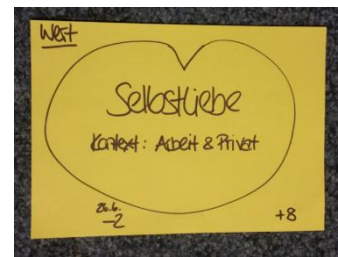 Wert
Selbstliebe
Kontext: Arbeit & Privat
26.6.
-2
+8